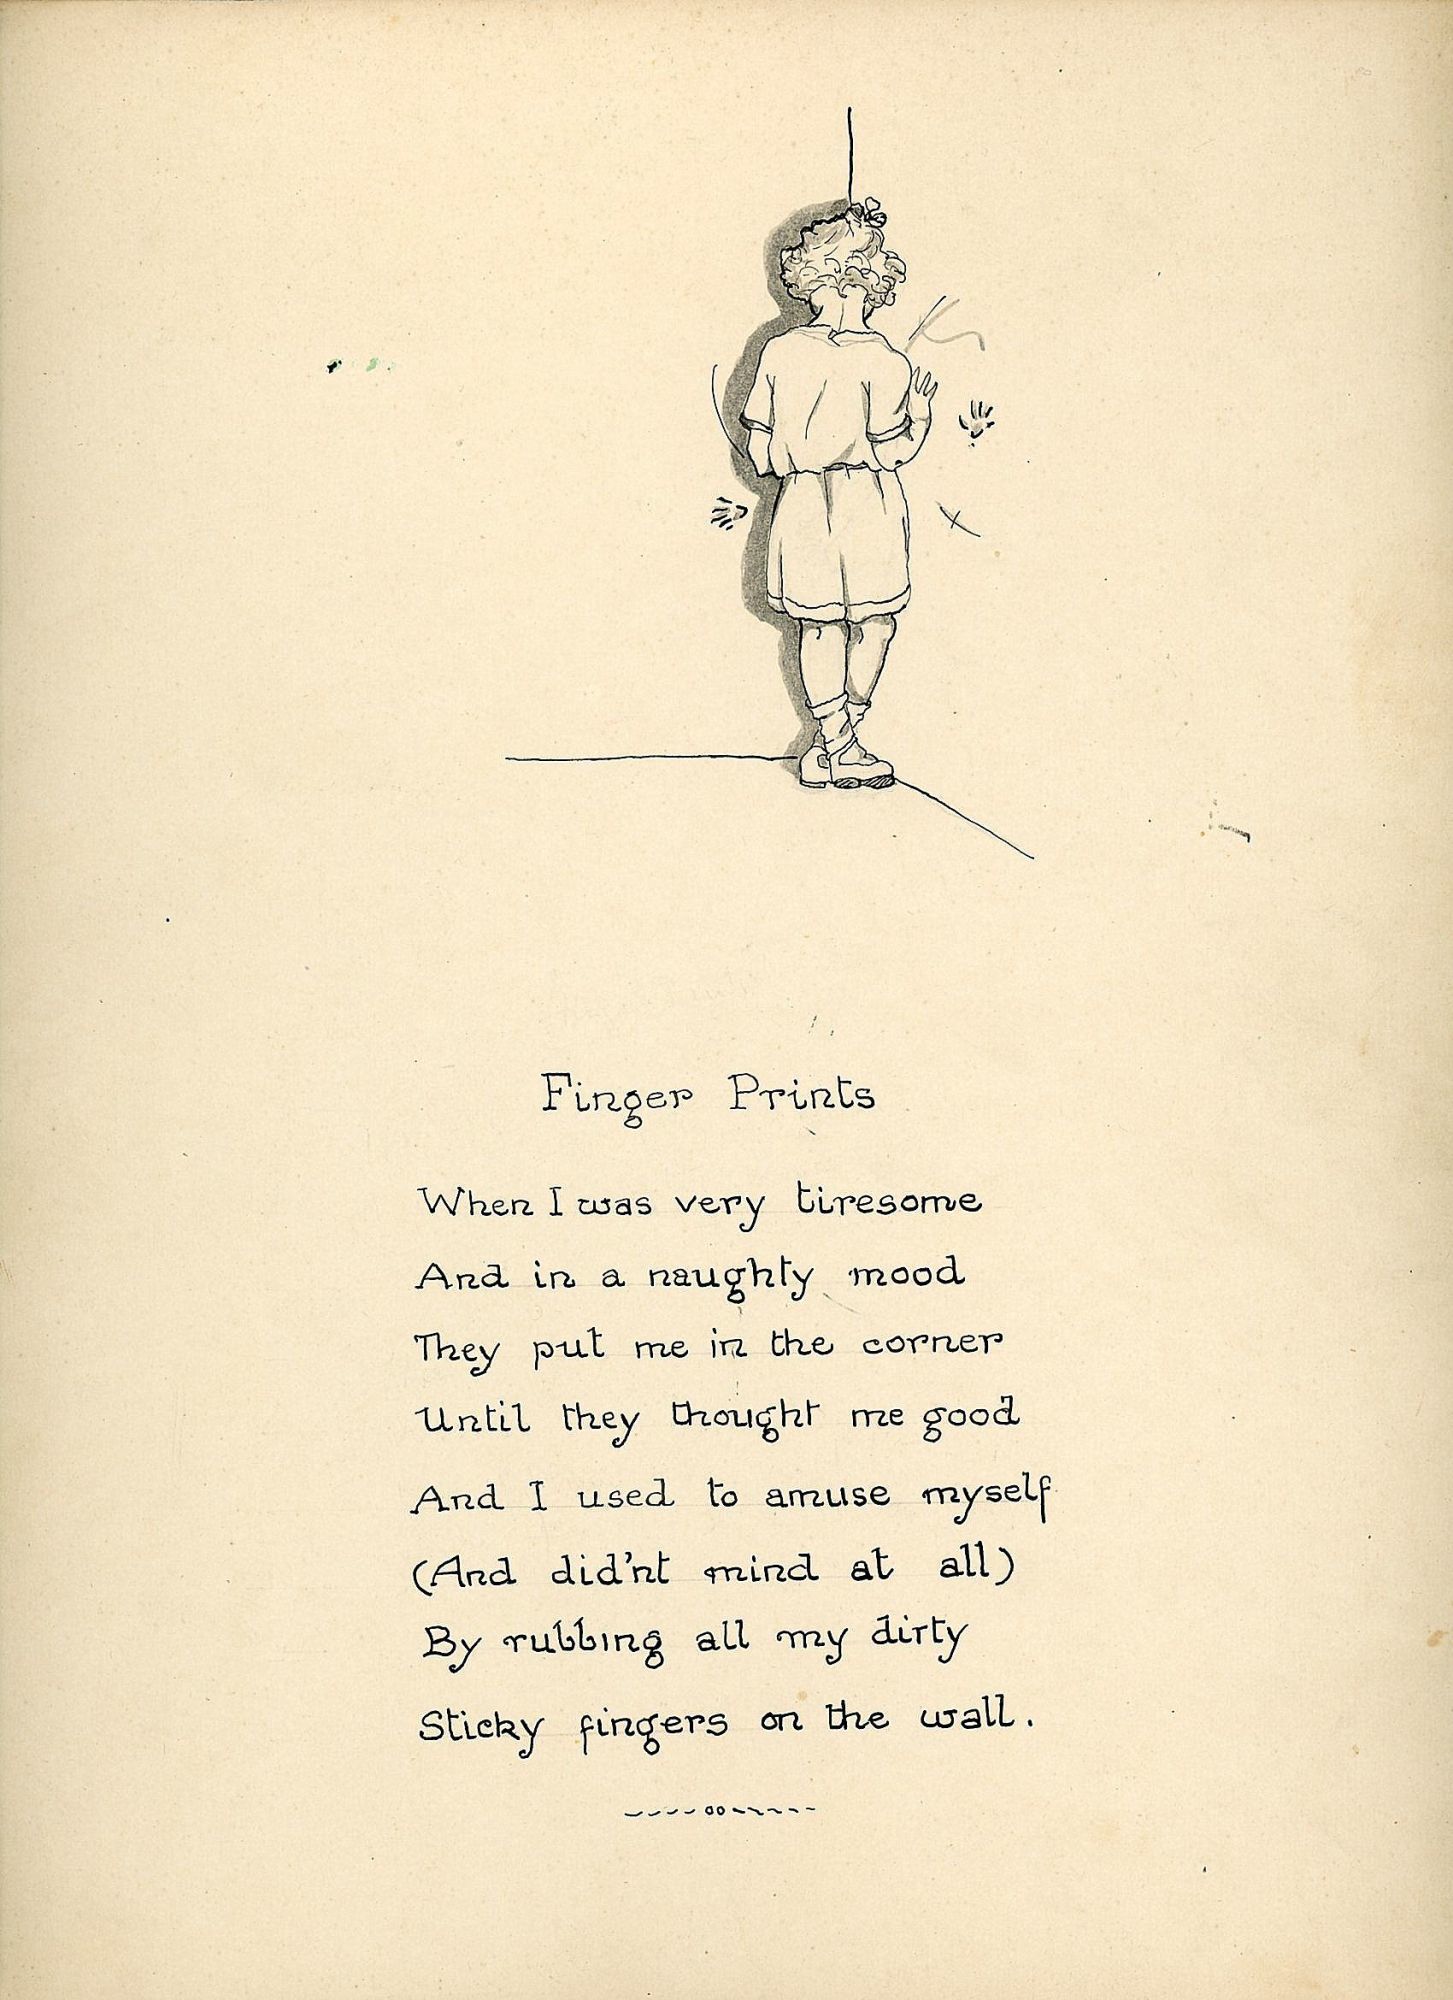 Finger Prints
When I was very tiresome
And in a naughty mood
They put me in the corner
Until they thought me good
And I used to amuse myself
(And did'nt mind at all)
By rubbing all my dirty
Sticky fingers on the wall.